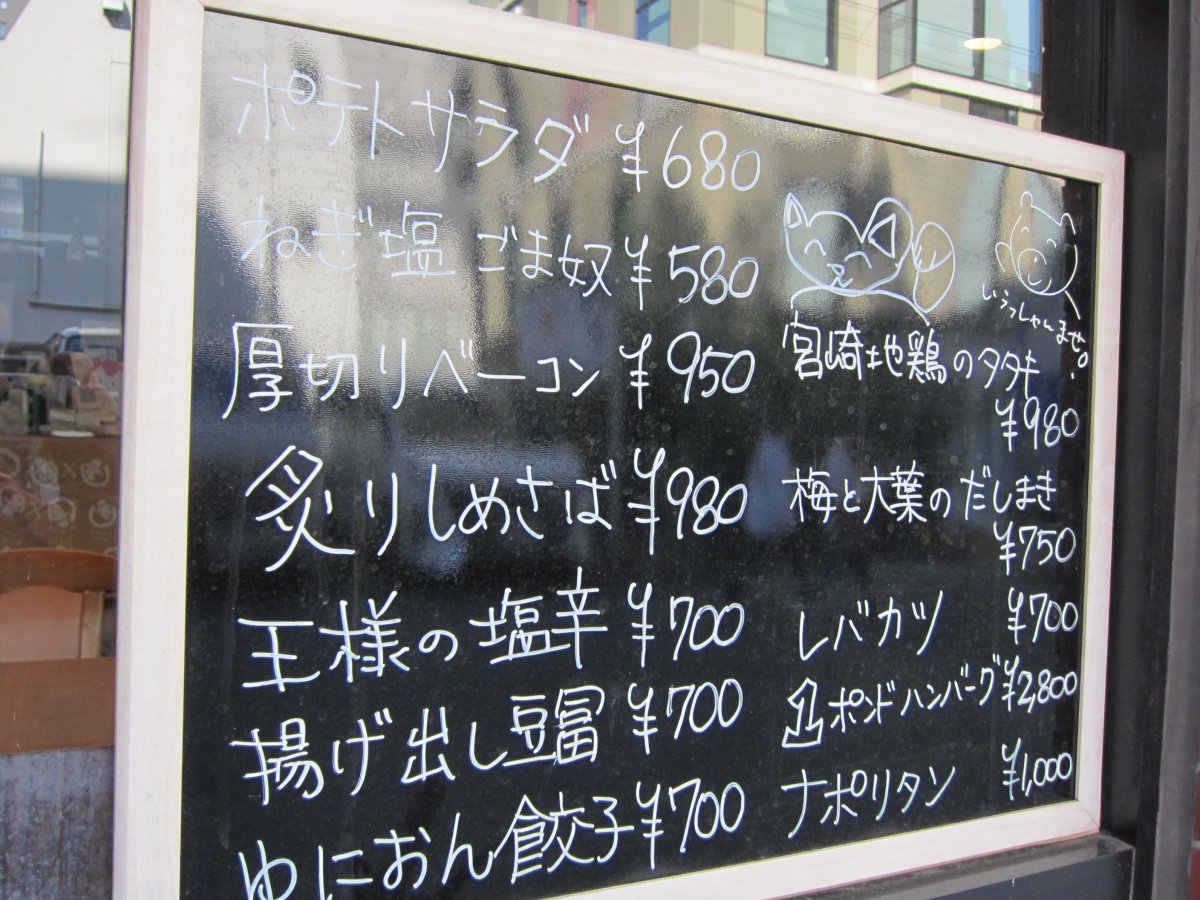 ポテトサラダ ¥680
ねぎ塩 ごま奴 ¥580
厚切りベーコン ¥950
炙りしめさば ¥980
王様の塩辛 ¥700
揚げ出し豆冨 ¥700
ゆにおん餃子 ¥700
いらっしゃいませ。
宮崎地鶏のタタキ
¥980
梅と大葉のだしまき
¥750
レバカツ ¥700
1ポンドハンバーグ ¥2,800
ナポリタン ¥1,000